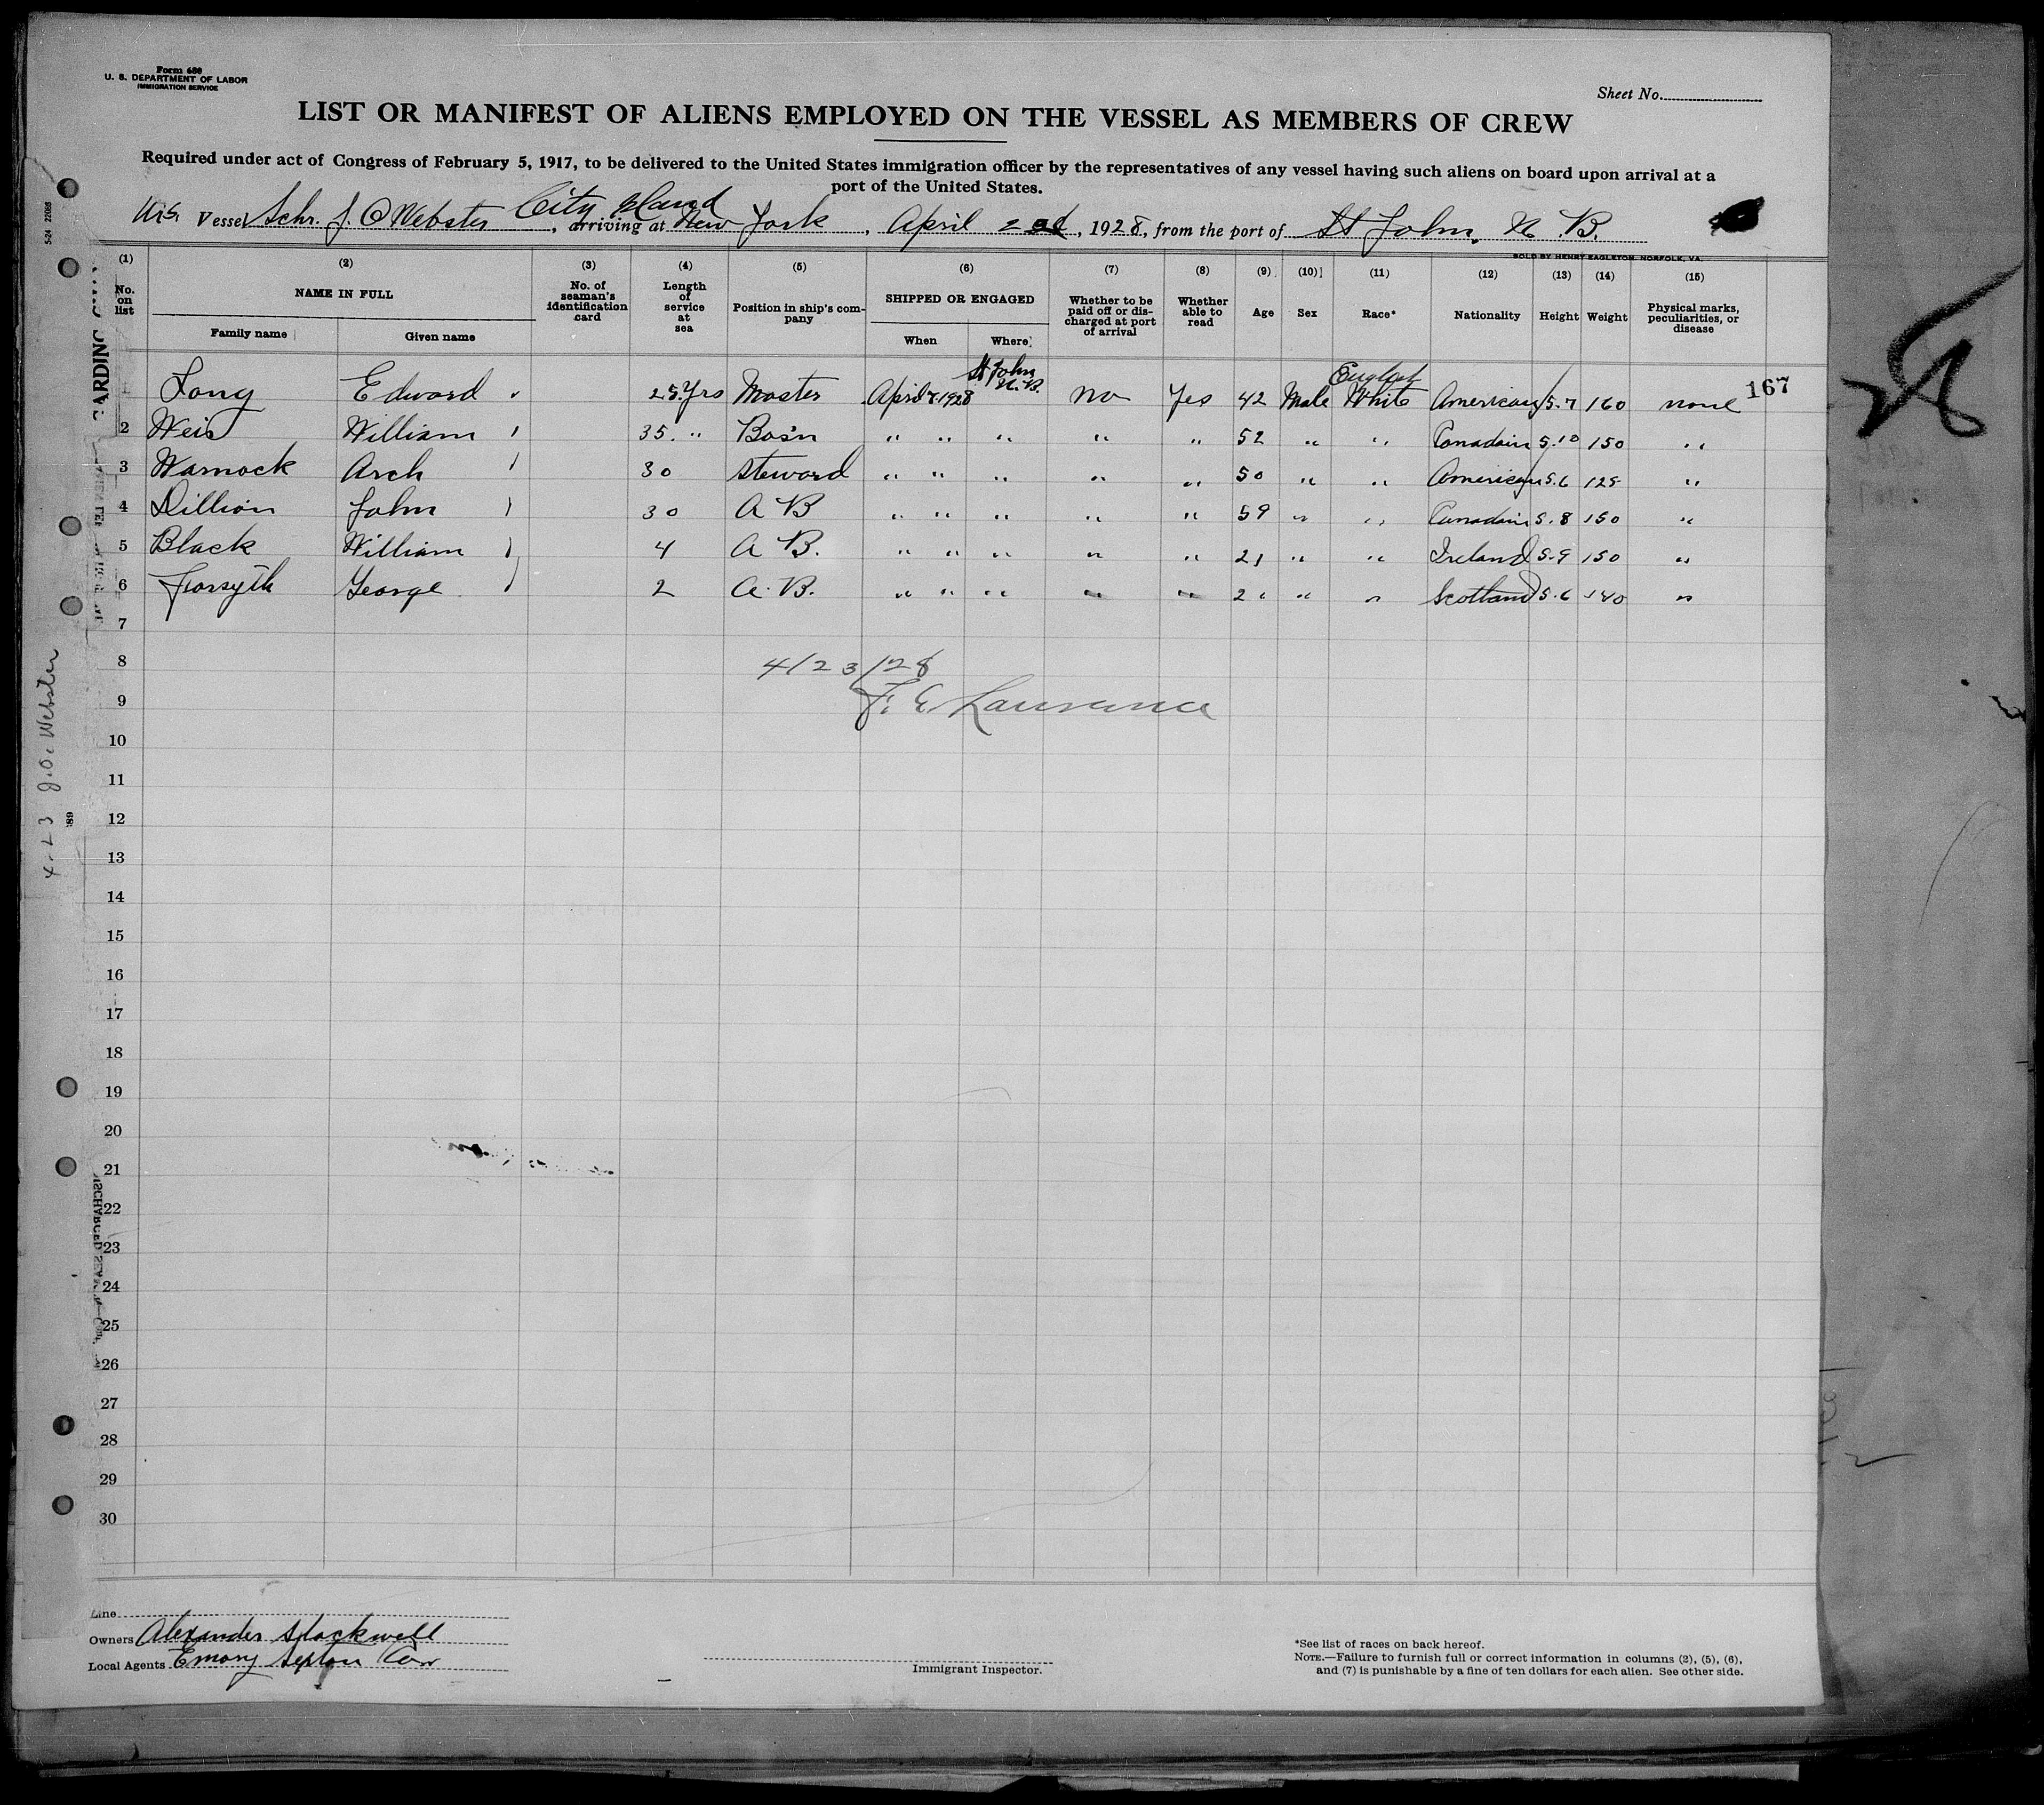 Form 680
U. S. DEPARTMENT OF LABOR
IMMIGRATION SERVICE
Sheet No.
LIST OR MANIFEST OF ALIENS EMPLOYED ON THE VESSEL AS MEMBERS OF CREW
Required under act of Congress of February 5, 1917, to be delivered to the United States immigration officer by the representatives of any vessel having such aliens on board upon arrival at a
port of the United States.
City Island
Vessel Schr. J. O Webster, arriving at New York, April, 1928, from the port of St John, N. B.
SOLD BY HENRY EAGLETON, NORFOLK, VA.
(1) (2) (3) (4) (5) (6) (7) (8) (9) (10) (11) (12) (13) (14) (15)
No. on list NAME IN FULL No. of seaman's identification card Length of service at sea Position in ship's company SHIPPED OR ENGAGED Whether to be paid off or discharged at port of arrival Whether able to read Age Sex Race* Nationality Height Weight Physical marks, peculiarities, or disease
Family name Given name When Where
St John N. B. English
1 Long Edward 25 Yrs Master April 1928 No Yes 42 Male White American 5.7 160 none
167
2 Weis William 35 " Bos'n " " " " " 52 " " Canadain 5.10 150 "
3 Warnock Arch 30 Steward " " " " " 50 " " American 5.6 125 "
4 Dillion John 30 A B " " " " " 59 " " Canadain 5.8 150 "
5 Black William 4 A B. " " " " " 21 " " Ireland 5.9 150 "
6 Forsyth George 2 A. B. " " " " " " " Scotland 5.6 140 "
7
8
4/23/28
9
F. E Laurance
10
11
12
13
14
15
16
17
18
19
20
21
22
23
24
25
26
27
28
29
30
Line
Owners Alexander Stockwell
Local Agents Emory Sexton
Immigrant Inspector.
*See list of races on back hereof.
NOTE.—Failure to furnish full or correct information in columns (2), (5), (6),
and (7) is punishable by a fine of ten dollars for each alien. See other side.
4-23 J.O. Webster
5-24 22068
89